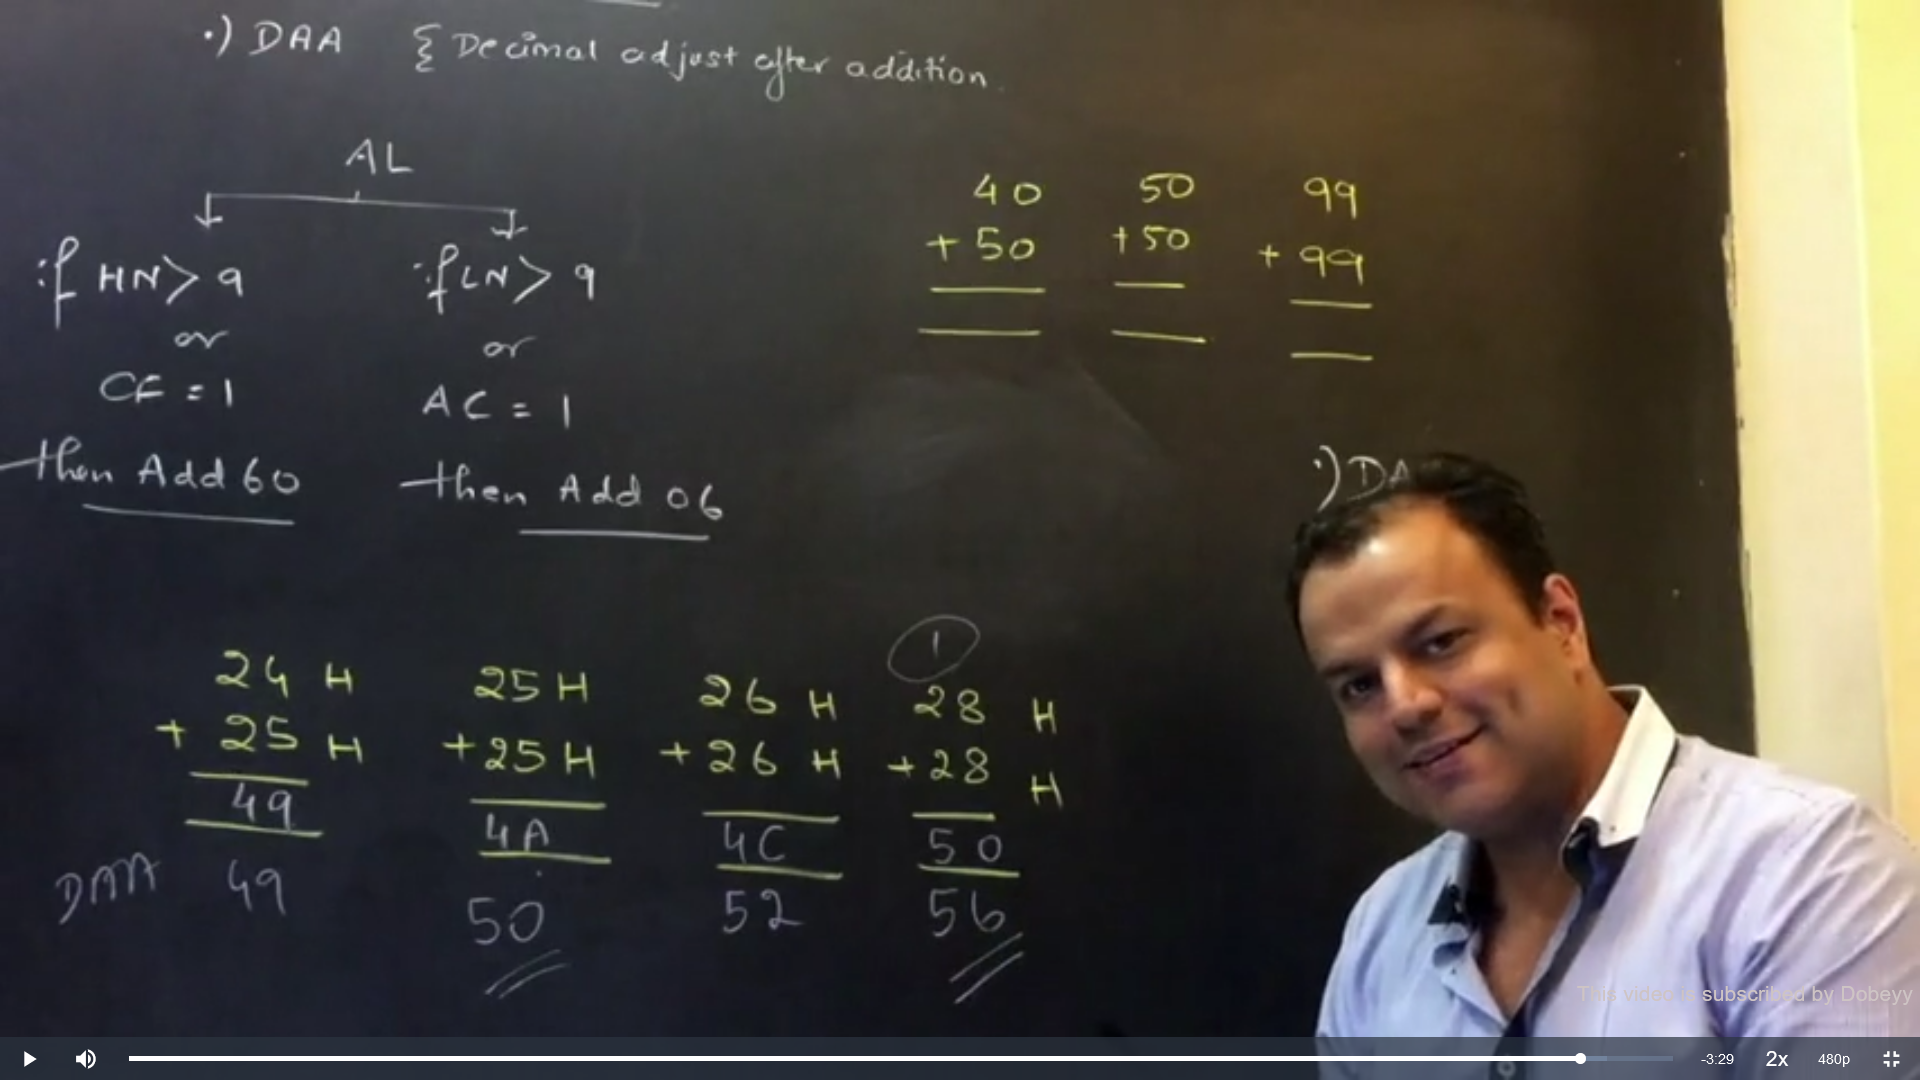 •) DAA { Decimal adjust after addition.
AL
if HN > 9
or
CF = 1
then Add 60
if LN > 9
or
AC = 1
then Add 06
40
+ 50
50
+ 50
99
+ 99
•) DA
24 H
+ 25 H
49
DAA 49
25 H
+ 25 H
4A
50
26 H
+ 26 H
4C
52
1
28 H
+ 28 H
50
56
This video is subscribed by Dobeyy
-3:29 2x 480p